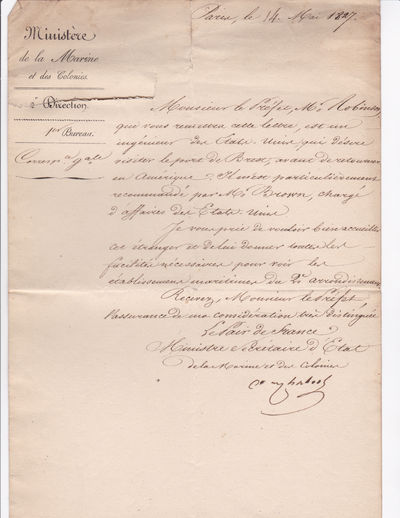 Paris, le 14 Mai 1827.
Ministère
de la Marine
et des Colonies.
2e Direction
1er Bureau.
Corresp.ce g.ale
Monsieur le Préfet, Mr. Robinson,
qui vous remettra cette lettre, est un
ingénieur des Etats Unis qui désire
visiter le port de Brest, avant de retourner
en Amérique. Il m'est particulièrement
recommandé par Mr. Brown, chargé
d'affaires des Etats Unis
Je vous prie de vouloir bien accueillir
cet étranger et de lui donner toutes les
facilités nécessaires pour voir les
établissements maritimes du 2e arrondissement.
Recevez, Monsieur le Préfet,
l'assurance de ma considération très distinguée
Le Pair de France
Ministre Secrétaire d'Etat
de la Marine et des Colonies